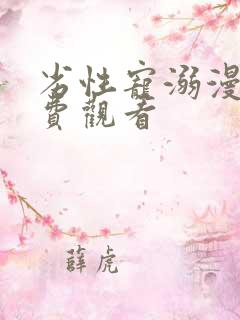 劣性寵溺漫
費觀看
薛虎